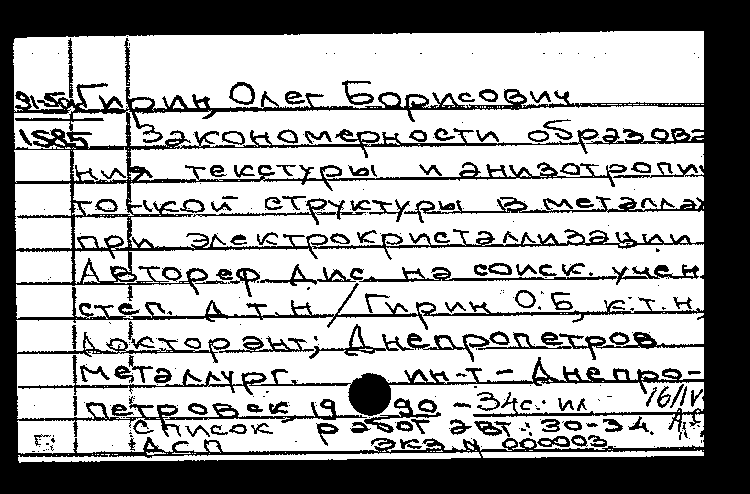 91-50 Гирин, Олег Борисович
1585 Закономерности образова
ния текстуры и анизотропии
тонкой структуры в металлах
при электрокристаллизации
Автореф. дис. на соиск. учен.
степ. д.т.н / Гирин О.Б, к.т.н,
докторант; Днепропетров.
металлург. ин-т - Днепро-
петровск 1990 - 34с.: ил 16/IV
Список работ авт.: 30-34.
АСП экз. N 000003